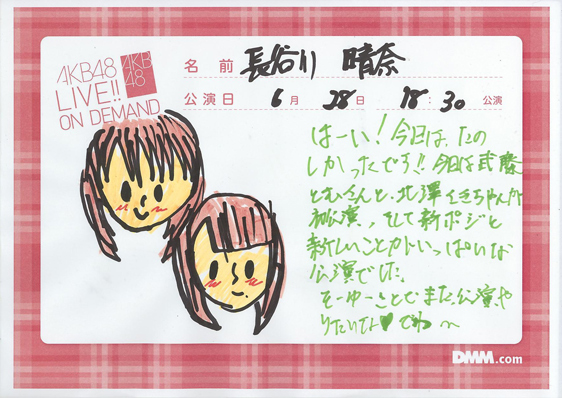 AKB48
LIVE!!
ON DEMAND
AKB
48
名前 長谷川 晴奈
公演日 6月 28日 18:30 公演
はーい!今日は、たの
しかったです!!今日は武藤
とむさんと、北澤さきちゃんが
初公演、そして新ポジと
新しいことがいっぱいな
公演でした。
そーゆーことでまた公演、や
りたいです♥でわ〜
DMM.com